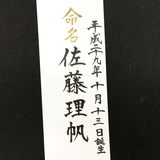 平成二九年十月十三日誕生
命名 佐藤理帆